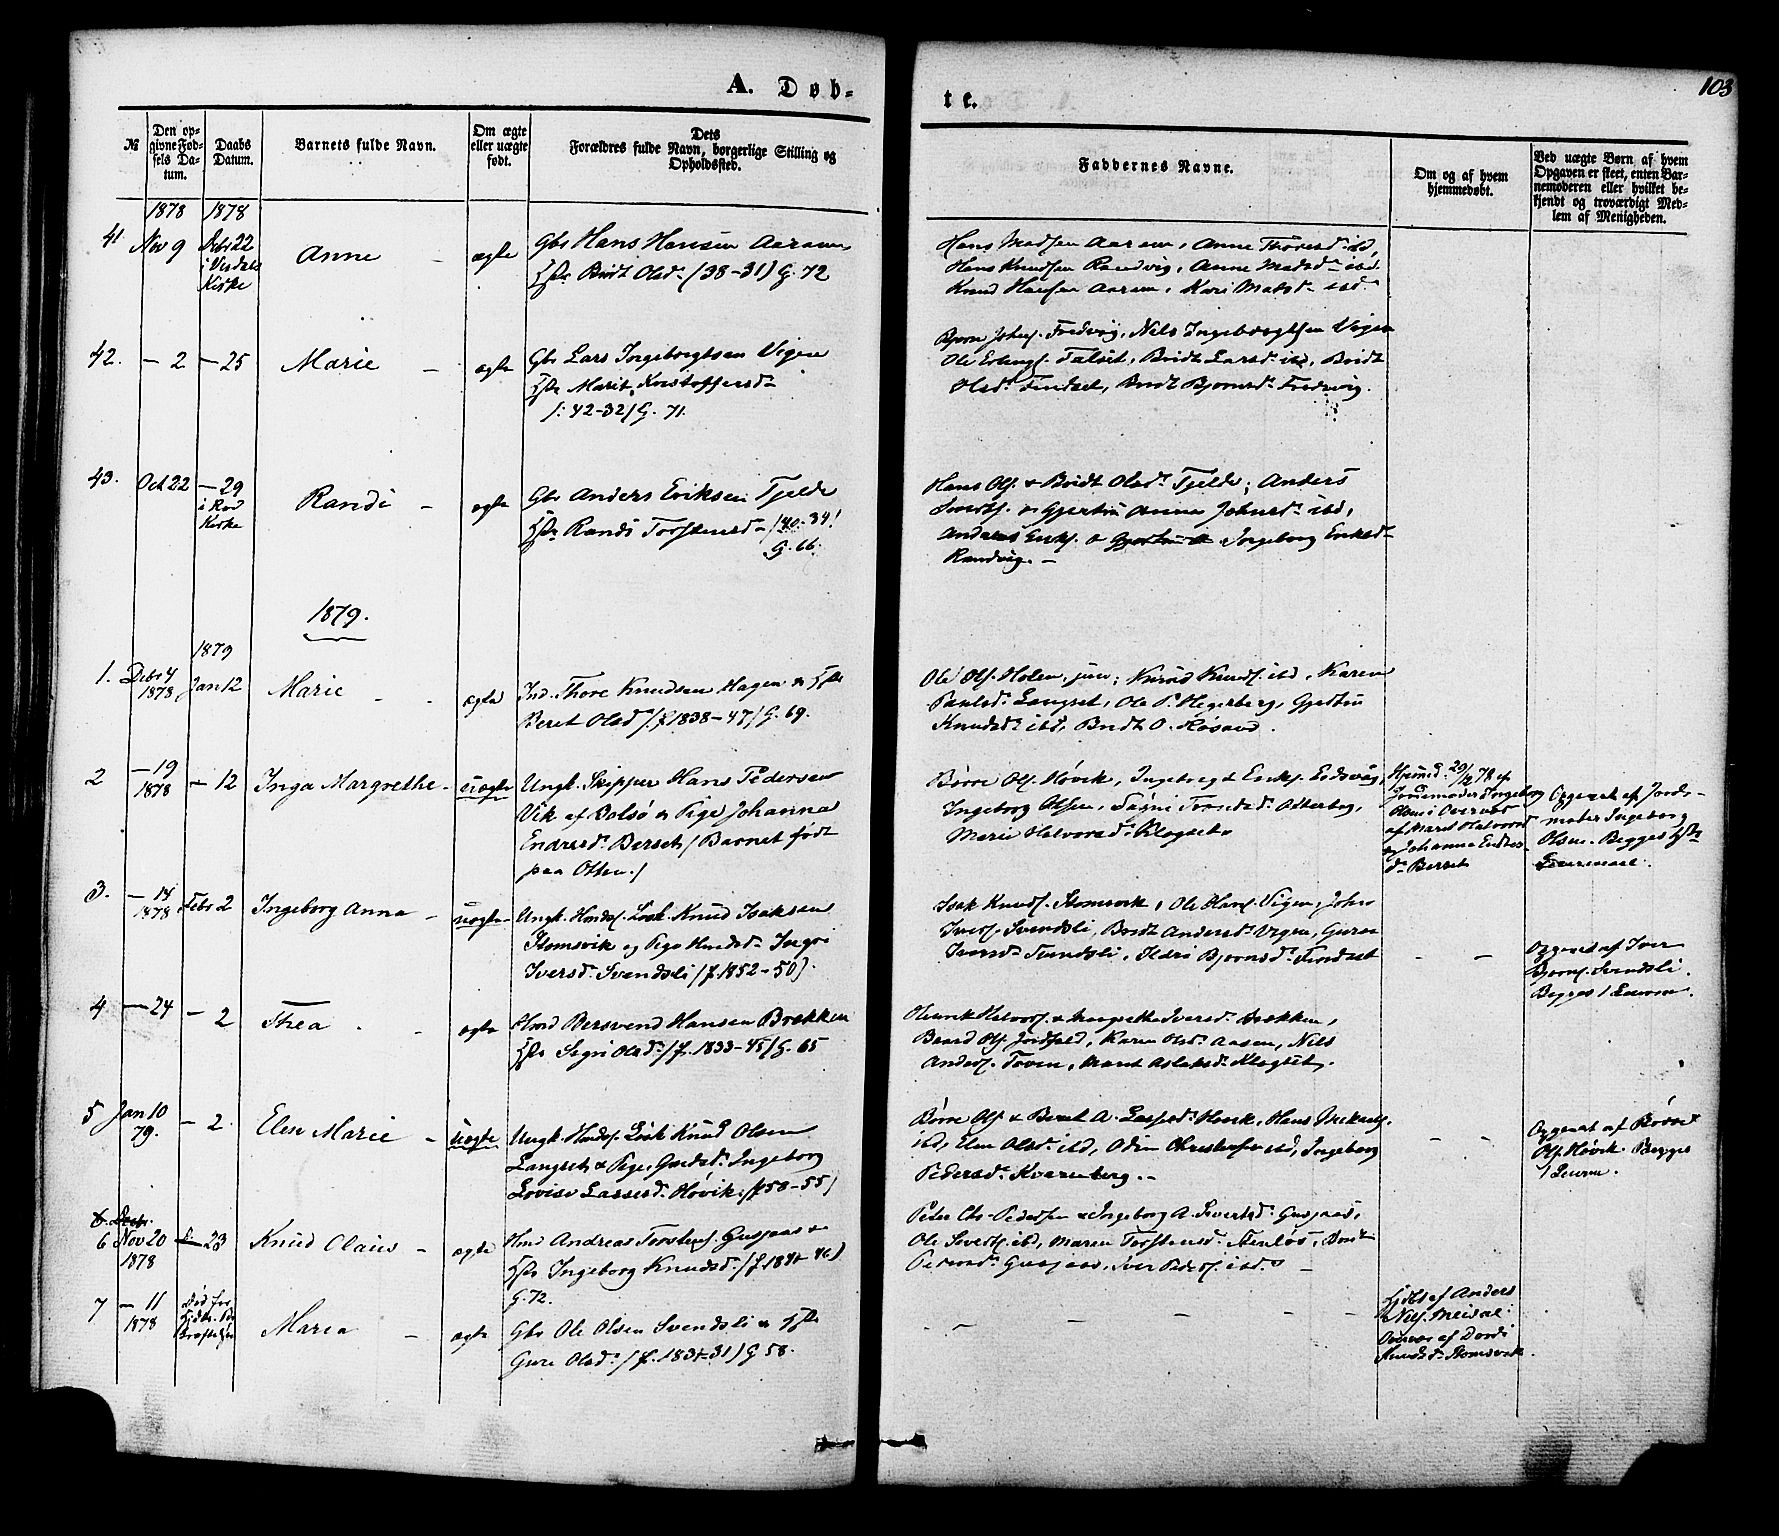 A. Døb-
te.
103
№
Den op-
givne Fød-
sels Da-
tum.
Daabs
Datum.
Barnets fulde Navn.
Om ægte
eller uægte
født.
Dets
Forældres fulde Navn, borgerlige Stilling og
Opholdssted.
Faddernes Navne.
Om og af hvem
hjemmedøbt.
Ved uægte Børn af hvem
Opgaven er skeet, enten Bar-
nemoderen eller hvilket be-
kjendt og troværdigt Med-
lem af Menigheden.
1878 1878
41. Nov 9
Debr 22
Kirke
Anne
ægte
Gbr Hans Hansen Aarøen
Hstr Bridt Olsdr (38-31) G. 72
Hans Madsen Aarøen, Anne ibd,
Hans Knudsen Randvig, Anne Madsdr ibd.
Knud Hansen Aarøen, Kari ibd.
42. - 2 - 25
Marie
ægte
Gbr Lars Ingebrigtsen Vigen
Hstr Marit Kristoffersdr
/: 42-32/ G. 71.
Bjørn Johns. Fredvig, Nils Ingebrigtsen Vigen
Ole Erlings. Talset, Bridt Larsdr ibd, Bridt
Olsdr Findset, Bridt Bjørnsdr Fredsvig.
43. Oct 22 - 29
i Rød
Kirke
Randi
ægte
Gbr Anders Eriksen Tjelde
Hstr Randi Torstensdr /40-34/
G. 66.
Hans Ols. & Bridt Olsdr Tjelde; Anders
Anne Johnsdr ibd,
Anders Eriks. & Ingeborg Eriksdr
Randvig. -
1879.
1879
1. Debr 4
1878
Jan 12
Marie
ægte
Ind. Thore Knudsen Hagen & Hstr
Beret Olsdr /f. 1838-47/ G. 69.
Ole Ols. Holen, jun; Knud Knuds. ibd, Karen
Paulsdr Langset, Ole P. Hegerberg, Gjertru
Knudsdr ibd, Bridt O. Røsand.
2 - 19
1878
- 12
Inga Margrethe
uægte
Ungk. Skipper Hans Pedersen
Vik af Bolsø & Pige Johanna
Endresdr Berset / Barnet født
paa Otten /
Børre Ols. Høvik, Ingebrigt Eriks. Eidsvåg,
Ingeborg Olsen, Østerbog,
Marie Halvorsdr Klogset
Hjemd. 29/12 78 af
Jordemoder Ingeborg
Olsen
af Marit Halvorsdr
& Johanna Endres-
dr Berset
Opgivet af Jorde-
moder Ingeborg
Olsen. Begges 1ste
3. - 14
1878
Febr 2
Ingeborg Anna
uægte
Ungk. Knud Isaksen
Stomsvik og Pige Ingri
Iversdr Svendsli /f. 1852-50/.
Isak Knuds. Stomsvik, Ole Hans. Vigen, John
Ivers. Svendsli, Bridt Andersdr Vigen, Guru
Iversdr Svendsli, Ildri Bjørnsdr Findset
- -
Opgivet af Iver
Bjørns. Svendsli.
Begges 1
4 - 24 - 2
Thea
ægte
Hmd Bersvend Hansen Brekken
Hstr Sigri Olsdr /f. 1833-45/ G. 65
Henrik Halvors. & Margrethe Iversdr Brekken,
Baard Ols. Karen Olsdr Aasen, Nils
Anders. Toven, Marit Aslaksdr Klogset.
5 Jan 10
79.
- 2.
Elen Marie
uægte
Ungk. Knud Olsen
Langset & Pige, Ingeborg
Lovise Larsesdr Høvik. /f 50-55/
Børre Ols. & Beret A. Hans
ibd, Elen Olsdr ibd, Odin Christofer ibd, Ingeborg
Pedersdr Kvernberg. -
- -
Opgivet af Børre
Ols. Høvik. Begges
1
6. Debr.
6 Nov 20
1878
- 23
Knud Olaus
ægte
Hmd Andreas Torstens. Gusjaas &
Hstr Ingeborg Knudsdr /f. 1841-46/
G. 72.
Peter Chr. Pedersen & Ingeborg A. Sivertsdr Gusjaas,
Ole Siverts. ibd, Maren Torstensdr
Pedersdr Gusjaas, Iver Peders. ibd.
7 - 11
1878
Maria
ægte
Gbr Ole Olsen Svendsli & Hstr
Guri Olsdr /f. 1831-31/ G 58.
- - - -
Hjdbt af Anders
Nils. Meisal.
af Dordi
Knudsdr Stomsvik.